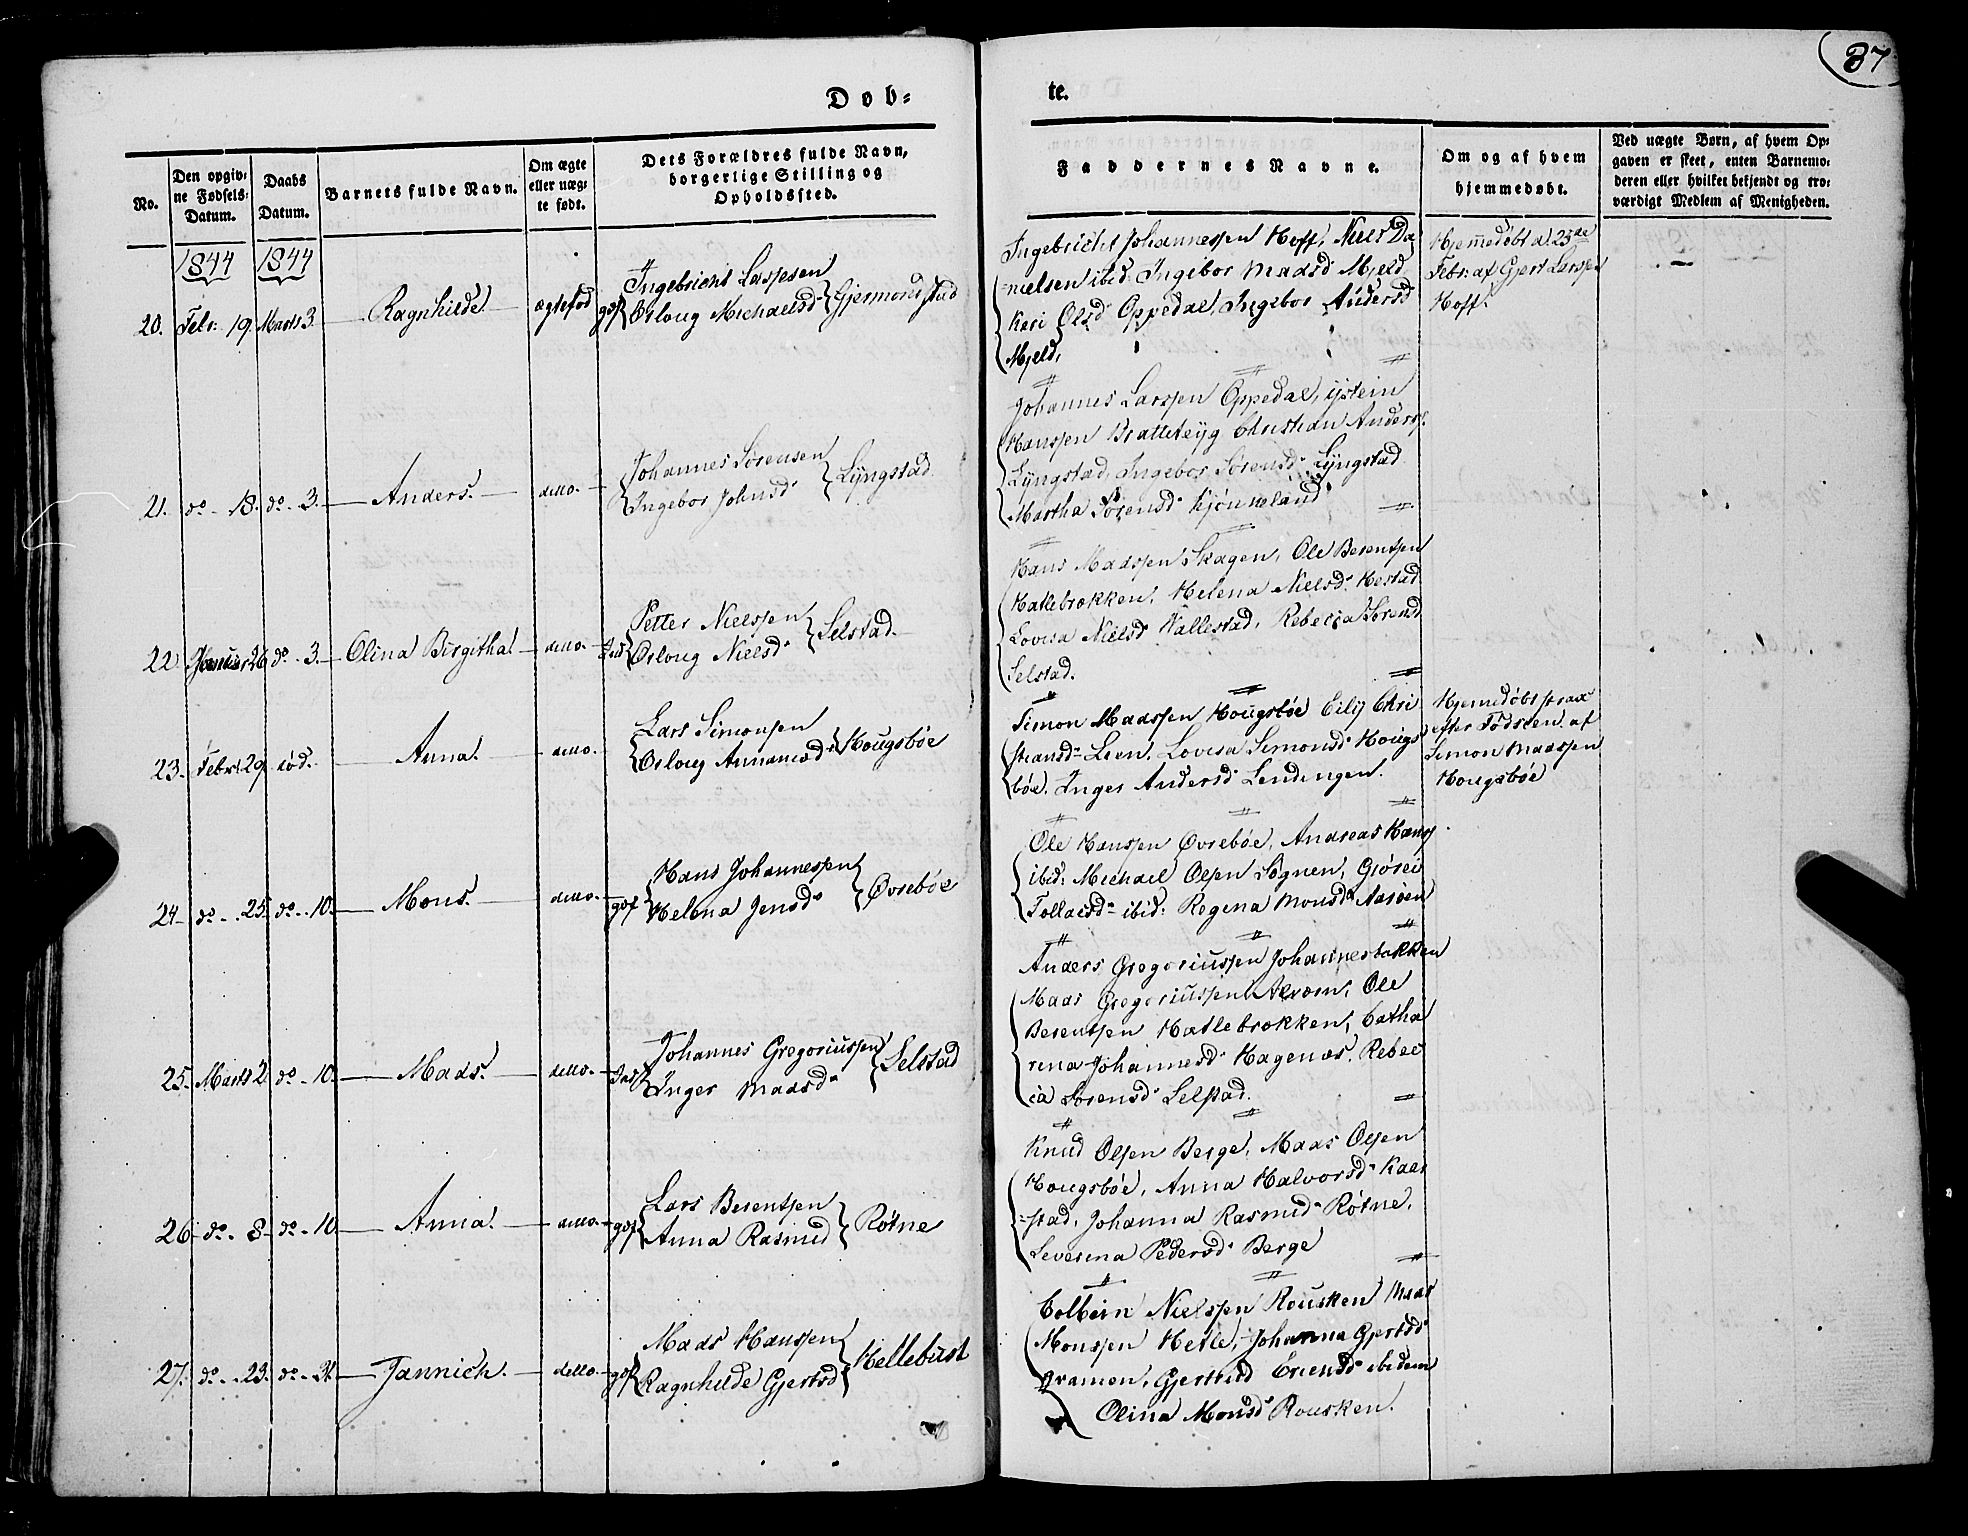 87
Døb-
te.
No.
Den opgiv-
ne Fødsels-
Datum.
Daabs
Datum.
Barnets fulde Navn.
Om ægte
eller uæg-
te født.
Dets Forældres fulde Navn,
borgerlige Stilling og
Opholdssted.
Faddernes Navne.
Om og af hvem
hjemmedøbt.
Ved uægte Børn, af hvem Op-
gaven er skeet, enten Barnemo-
deren eller hvilket bekjendt og tro-
værdigt Medlem af Menigheden.
1844 1844
20. Febr: 19. Marts 3. Ragnhilde ægtefød
Ingebricht Larssen
Orloug Michaelsd Gjermondstad
Ingebricht Johannessen Hoff, Niels Da
nielsen ibid: Ingibor Madsd Mjeld
Kari Olsd Oppedal, Ingebor Andersd
Mjeld,
Hjemmedøbt d. 23de
Febr: af Gjert Larssen
Hoff.
21. do - 18. do - 3. Anders. ditto.
Johannes Sørensen
Ingebor Johnsd Lyngstad
Johannes Larssen Oppedal, ijstein
Hanssen Bratteteyg Christian Anderss.
Lyngstad, Ingebor Sørensd Lyngstad
Martha Sørensd
22. Januar 26 do - 3. Olina Birgitha ditto. Ind
Petter Nielssen
Orloug Nielsd Selstad.
Hans Madssen Skagen, Ole Berentsen
Hatlebrækken, Helena Nielsd Hestad
Lovisa Nielsd Vallestad, Rebecca Sørensd
Selstad.
23. Febr: 29. iød. Anna. ditto.
Lars Simonsen
Orloug Hougsbøe
Simon Madssen Hougsbøe Eilij Chri
stiansd Leen, Lovisa Simonsd Hougs
bøe, Inger Andersd Lendingen.
Hjemedøbt strax
efter Fødslen af
Simon Madssen
Hougsbøe
24 - do - 25. do - 10. Mons. ditto.
Hans Johannessen
Helena Jensd Øvrebøe
Ole Hanssen Øvrebøe, Andreas Hanss
ibid: Michael Olsen Sognen, Gjørei
Tollaesd ibid: Regina Monsd Aasøen
25. Marts 2. do - 10. Mads. ditto. Ind
Johannes Gregoriussen
Inger Madsd Selstad
Anders Gregoriussen Johannesbakken
Mads Gregoriussen Ole
Berentsen Hatlebrækken, Catha
rina Johannesd Hagenæs, Rebec
ca Sørensd Selstad.
26 - do - 8 - do - 10 Anna. ditto.
Lars Berentsen
Anna Rasmusd Røtne
Knud Olsen Berge, Mads Olsen
Hougsbøe, Anna Halvorsd Kaar
stad, Johanna Rasmusd Røtne,
Severina Pedersd Berge
27. do - 23. do - 31. Jannich. ditto.
Mads Hanssen
Ragnhilde Gjertsd Hellebust
Colbein Nielssen Rousken Mads
Monssen Hetle, Johanna Gjertsd
Gjertrud ibidem
Olina Monsd Rousken.